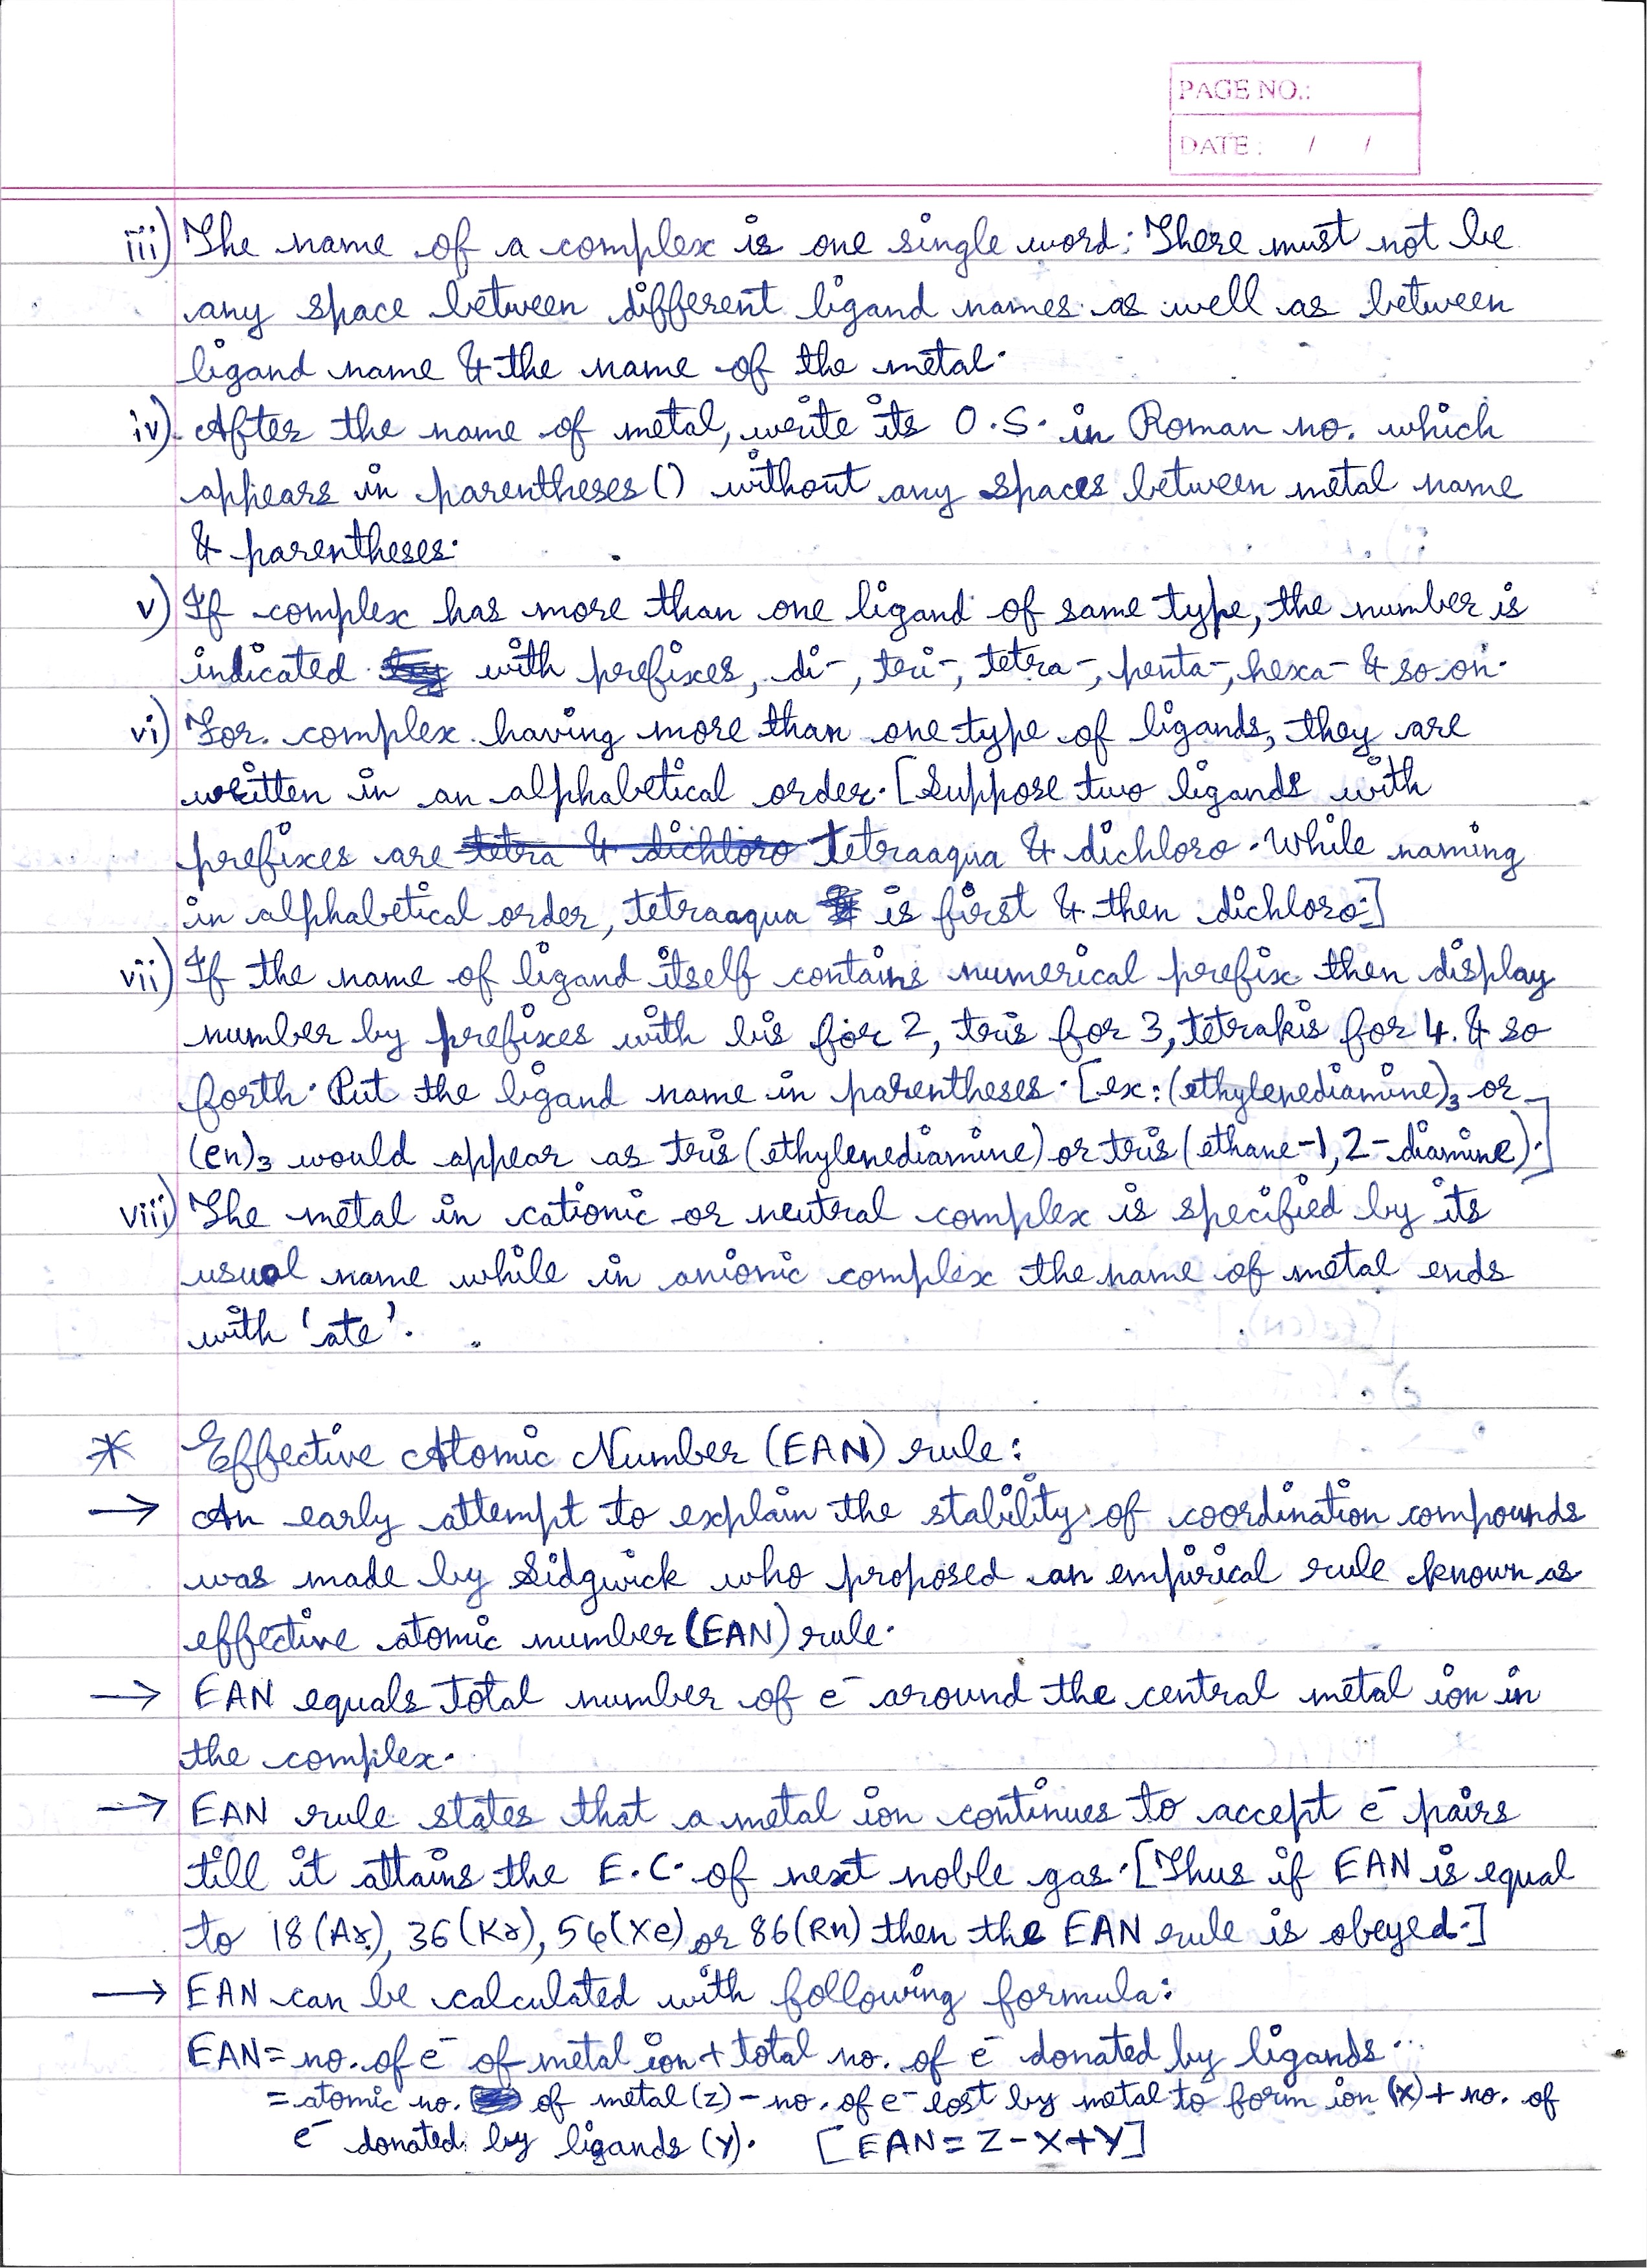 PAGE NO.:
DATE: / /
iii) The name of a complex is one single word. There must not be
any space between different ligand names as well as between
ligand name & the name of the metal.
iv) After the name of metal, write its O.S. in Roman no. which
appears in parentheses () without any spaces between metal name
& parentheses.
v) If complex has more than one ligand of same type, the number is
indicated with prefixes, di-, tri-, tetra-, penta-, hexa- & so on.
vi) For complex having more than one type of ligands, they are
written in an alphabetical order. [Suppose two ligands with
prefixes are tetra & dichloro tetraaqua & dichloro. While naming
in alphabetical order, tetraaqua is first & then dichloro.]
vii) If the name of ligand itself contains numerical prefix then display
number by prefixes with bis for 2, tris for 3, tetrakis for 4. & so
forth. Put the ligand name in parentheses. [ex: (ethylenediamine)₃ or
(en)₃ would appear as tris(ethylenediamine) or tris(ethane-1,2-diamine).]
viii) The metal in cationic or neutral complex is specified by its
usual name while in anionic complex the name of metal ends
with 'ate'.
* Effective Atomic Number (EAN) rule:
→ An early attempt to explain the stability of coordination compounds
was made by Sidgwick who proposed an empirical rule known as
effective atomic number (EAN) rule.
→ EAN equals total number of e⁻ around the central metal ion in
the complex.
→ EAN rule states that a metal ion continues to accept e⁻ pairs
till it attains the E.C. of next noble gas. [Thus if EAN is equal
to 18 (Ar), 36 (Kr), 54 (Xe) or 86 (Rn) then the EAN rule is obeyed.]
→ EAN can be calculated with following formula:
EAN = no. of e⁻ of metal ion + total no. of e⁻ donated by ligands...
= atomic no. of metal (z) - no. of e⁻ lost by metal to form ion (x) + no. of
e⁻ donated by ligands (y). [EAN = Z - X + Y]